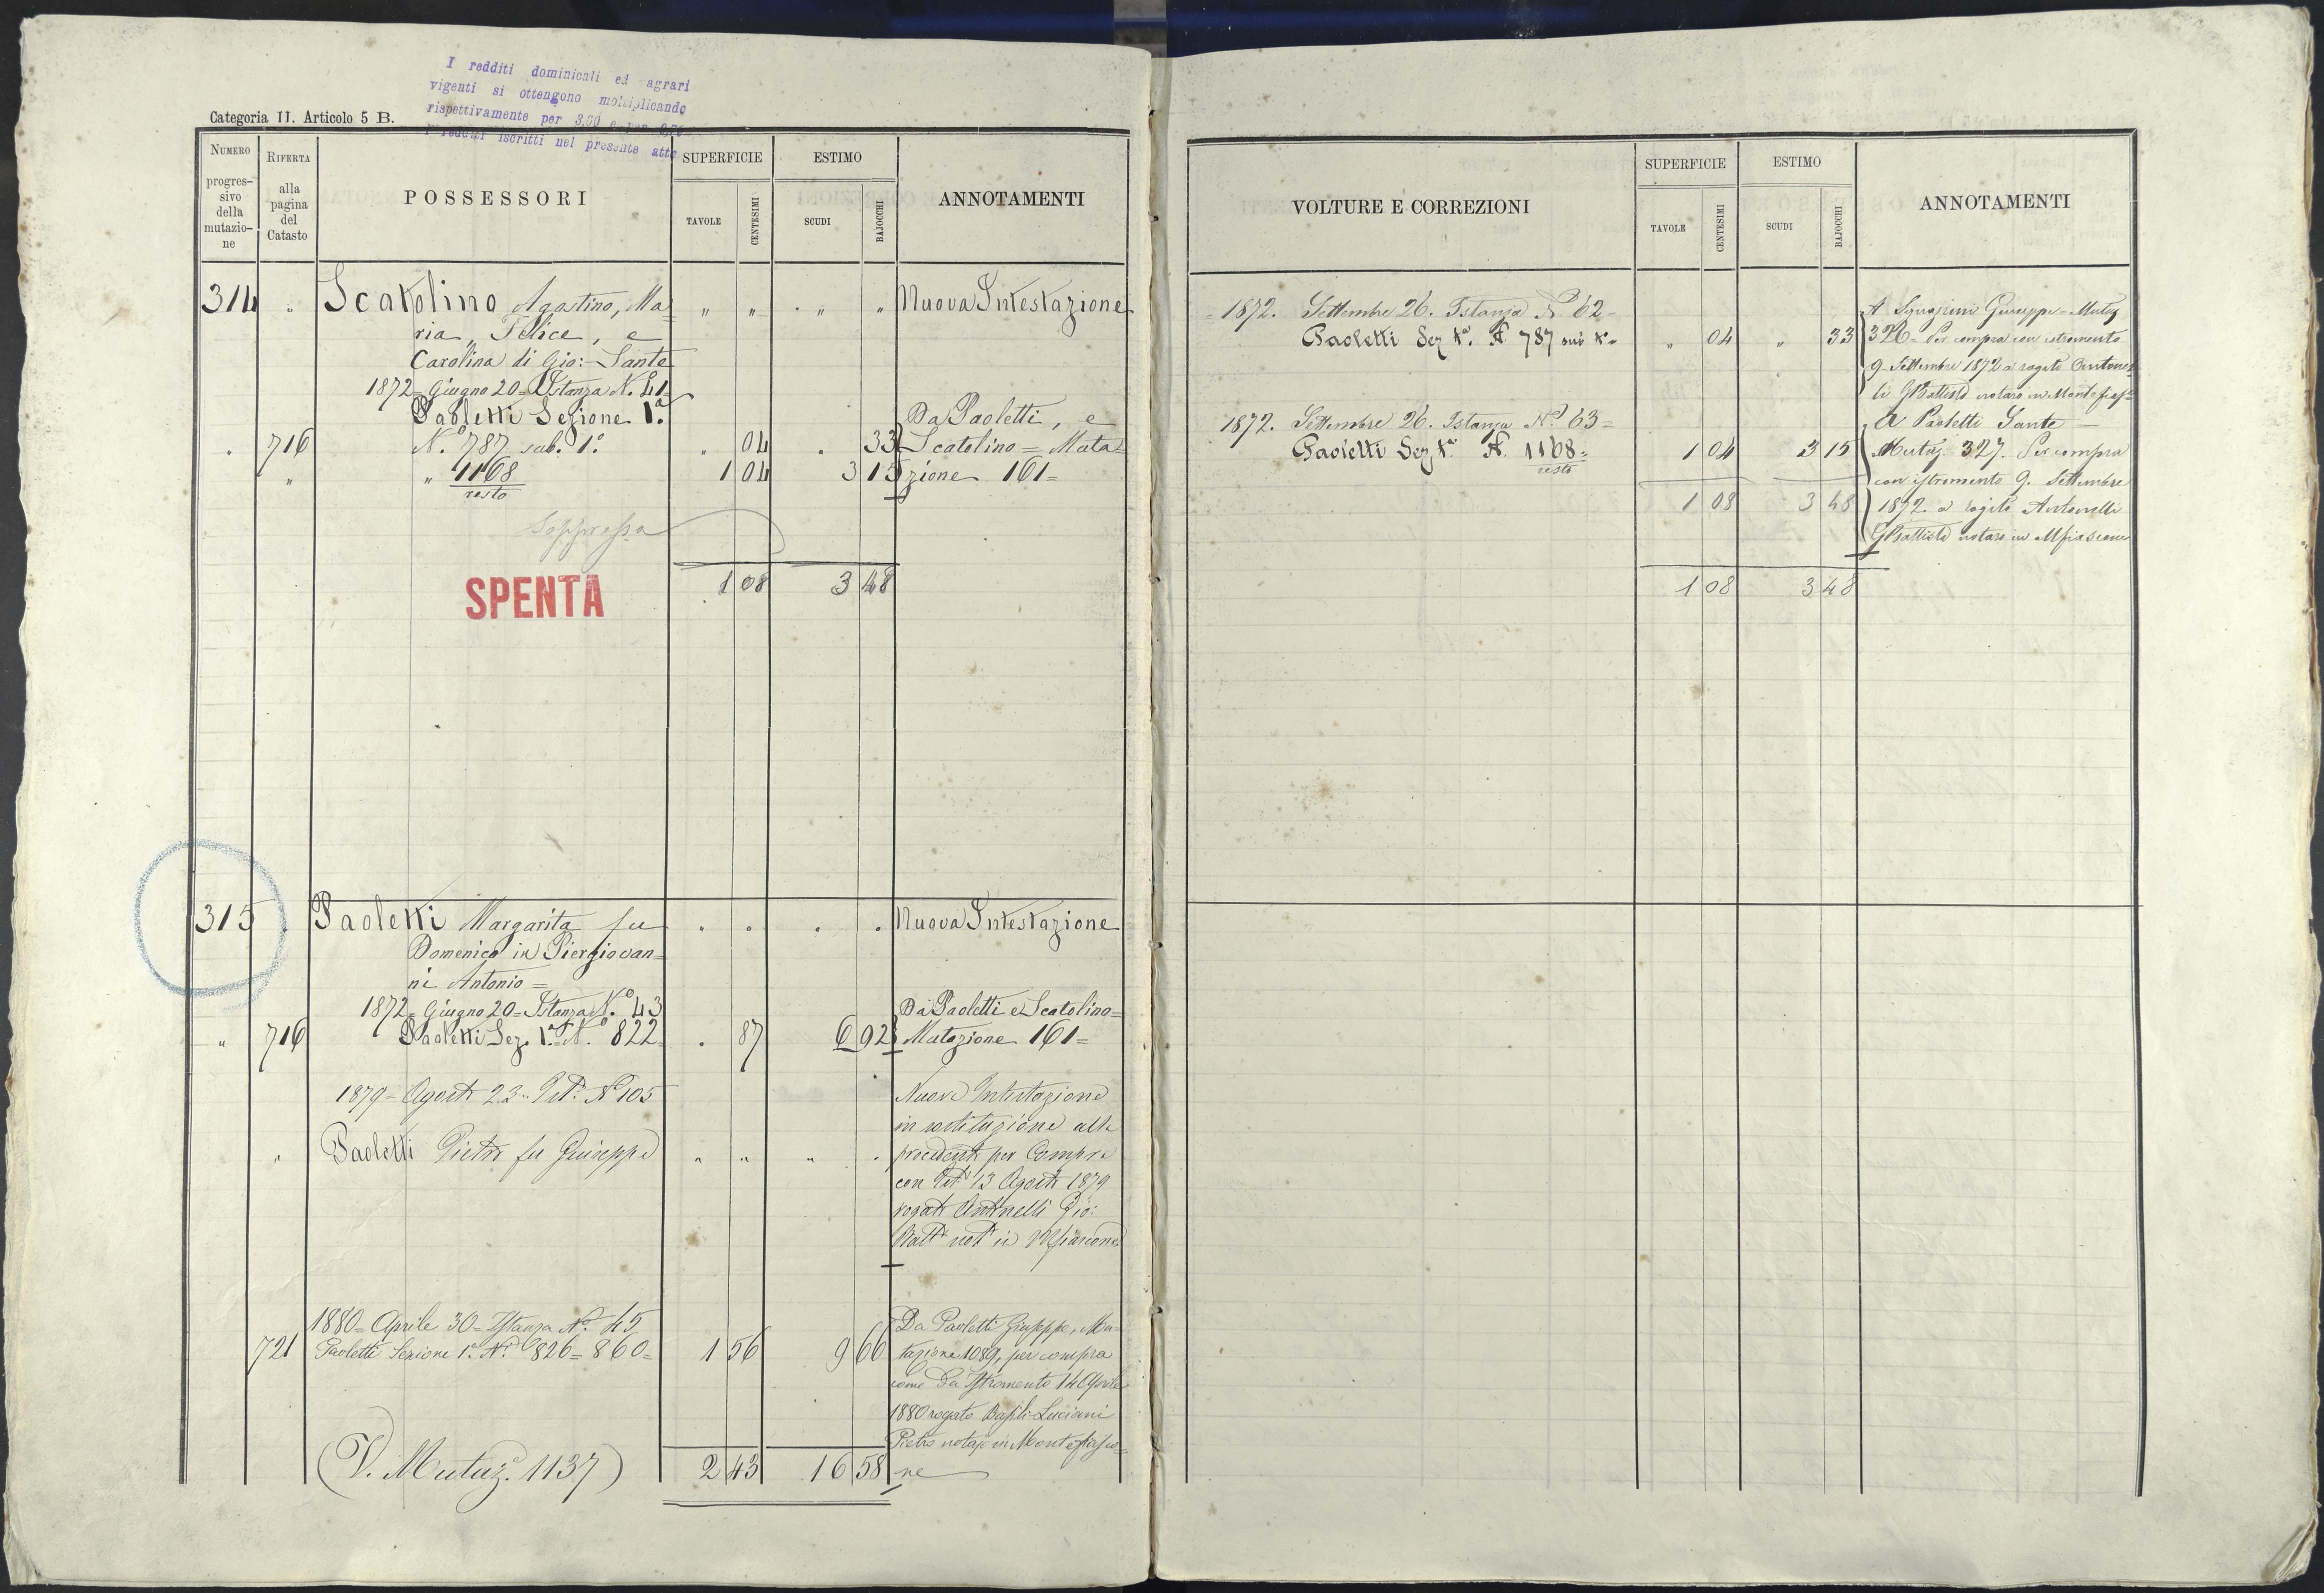 I redditi dominicali ed agrari
vigenti si ottengono moltiplicando
rispettivamente per 3,60 e per
i redditi iscritti nel presente atto
Categoria II. Articolo 5 B.
NUMERO progres-sivo della mutazio-ne
RIFERTA alla pagina del Catasto
POSSESSORI
SUPERFICIE
TAVOLE CENTESIMI
ESTIMO
SCUDI BAJOCCHI
ANNOTAMENTI
314 " Scatolino Agostino, Ma= " " " " Nuova Intestazione
ria, Felice, e
Carolina di Gio: Sante
1872= Giugno 20= Istanza N.º 41=
Paoletti Sezione 1.ª Da Paoletti, e
" 716 N.º 787 sub. 1.º " 04 " 33 Scatolino= Muta=
" " 1168 1 04 3 15 zione 161=
resto
Soppressa
SPENTA
1 08 3 48
315 " Paoletti Margarita fu " " " " Nuova Intestazione
Domenico in Piergiovan=
ni Antonio=
1872= Giugno 20= Istanza N.º 43 Da Paoletti e Scatolino=
" 716 Paoletti Sez. 1.ª N.º 822 " 87 6 92 Mutazione 161=
1879- Agosto 23 N.º 105 Nuova Intestazione
in sostituzione alla
" Paoletti Pietro fu Giuseppe " " " " precedente per Compra
con 13 Agosto 1879
rogato Antonelli Gio:
Batt.ª not.º in Mfiascone
1880= Aprile 30= Istanza N.º 45 Da Paoletti Giuseppe, Mu=
721 Paoletti Sezione 1.ª N.i 826= 860= 1 56 9 66 tazione 1089, per compra
come da Istromento 14 Aprile
1880 rogato Basili-Luciani
Pietro notajo in Montefiasco=
(V. Mutaz.e 1137) 2 43 16 58 ne
VOLTURE E CORREZIONI
SUPERFICIE
TAVOLE CENTESIMI
ESTIMO
SCUDI BAJOCCHI
ANNOTAMENTI
1872. Settembre 26. Istanza N.º 62= A Giuseppe= Mutaz
Paoletti Sez 1.ª N.º 787 sub 1.º " 04 " 33 326= Per compra con istromento
9. Settembre 1872 a rogito Antonel=
li GBattista notaro in Montefiasc.e
1872. Settembre 26. Istanza N.º 63= A Paoletti Sante=
Paoletti Sez 1.ª N. 1168= 1 04 3 15 Mutaz. 327. Per compra
resto con istromento 9. Settembre
1 08 3 48 1872. a rogito Antonelli
GBattista notaro in Mfiascone
1 08 3 48